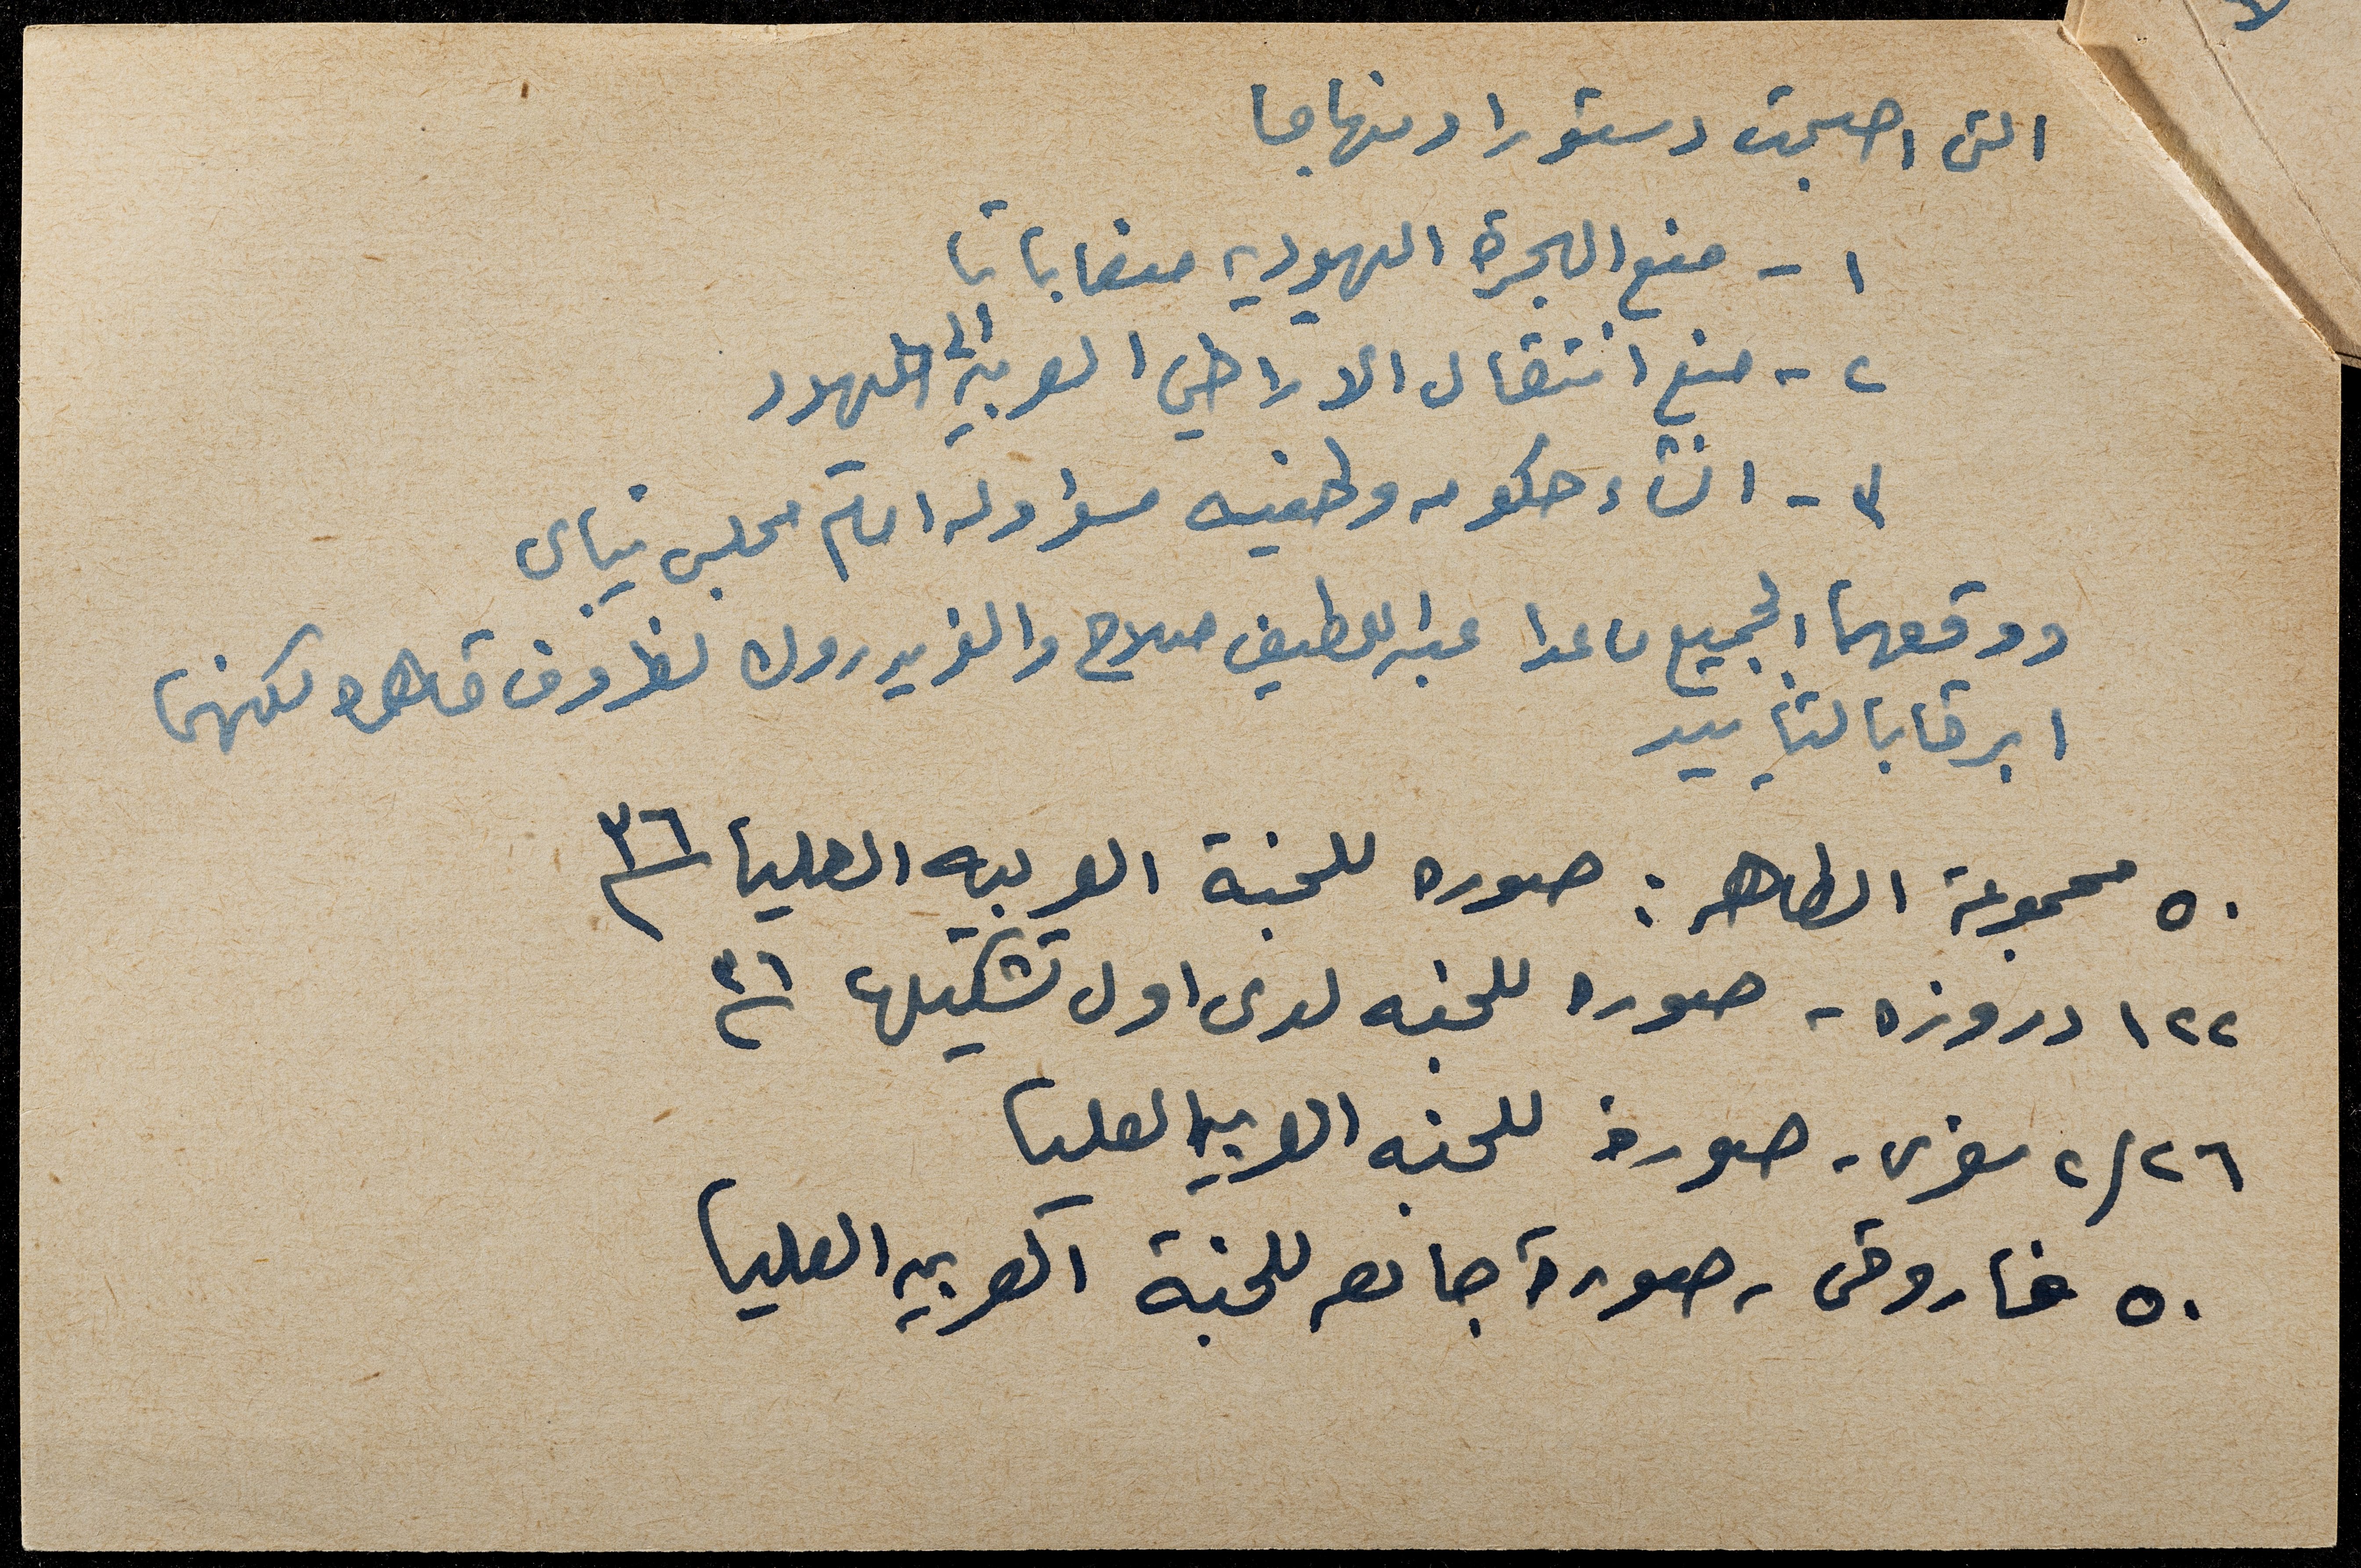 التى اصبحت دستورا ومنهاجا
١ - منع الهجرة اليهوديه منعا باتا
٢ - منع انتقال الاراضي العربية الى اليهود
٣ - انشاء حكومه وطنيه مسؤوله امام مجلس نيابى
ووقعها الجميع ما عدا عبد اللطيف صلاح والفريد روك لظروف قاهره لكنهما
ابرقا بالتأييد
٥٠ مجموعة الطاهر : صوره للجنة العربيه العليا ٣٦
١٢٢ دروزه - صوره للجنه لدى اول تشكيلها ٣٦
٢/٢٦ - صورة للجنه العربيه العليا
٥٠ فاروقى - صورة جامعه للجنة العربيه العليا